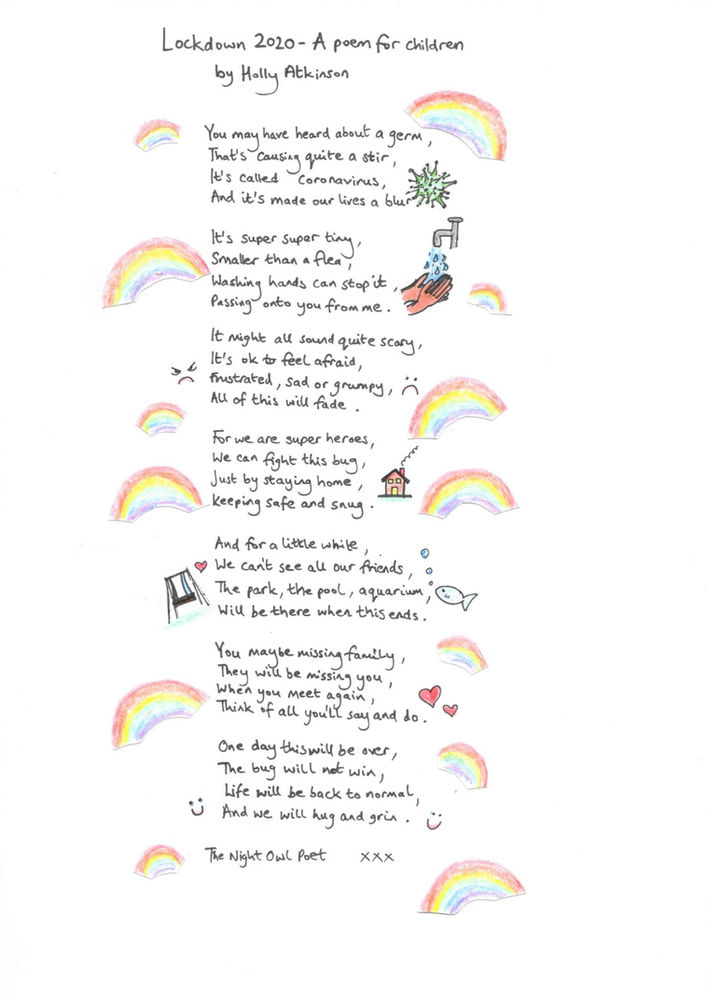 Lockdown 2020 - A poem for children
by Holly Atkinson
You may have heard about a germ,
That's causing quite a stir,
It's called Coronavirus,
And it's made our lives a blur
It's super super tiny,
Smaller than a flea,
Washing hands can stop it,
Passing onto you from me.
It might all sound quite scary,
It's ok to feel afraid,
Frustrated, sad or grumpy,
All of this will fade.
For we are super heroes,
We can fight this bug,
Just by staying home,
Keeping safe and snug.
And for a little while,
We can't see all our friends,
The park, the pool, aquarium,
Will be there when this ends.
You maybe missing family,
They will be missing you,
When you meet again,
Think of all you'll say and do.
One day this will be over,
The bug will not win,
Life will be back to normal,
And we will hug and grin.
The Night Owl Poet xxx